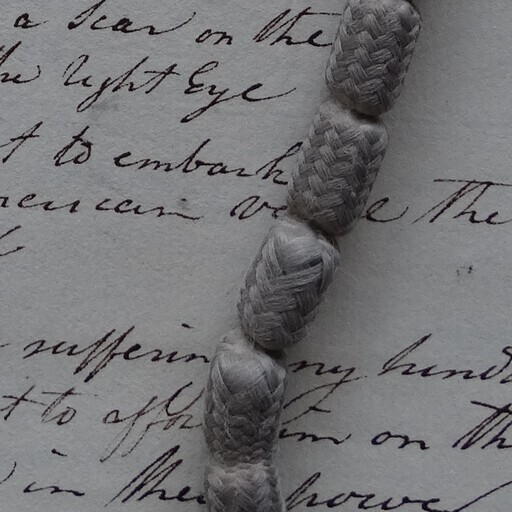 a Scar on the
the Right Eye
t to embark
merican ve e The
suffering ny hind
t to aff im on th
in the power